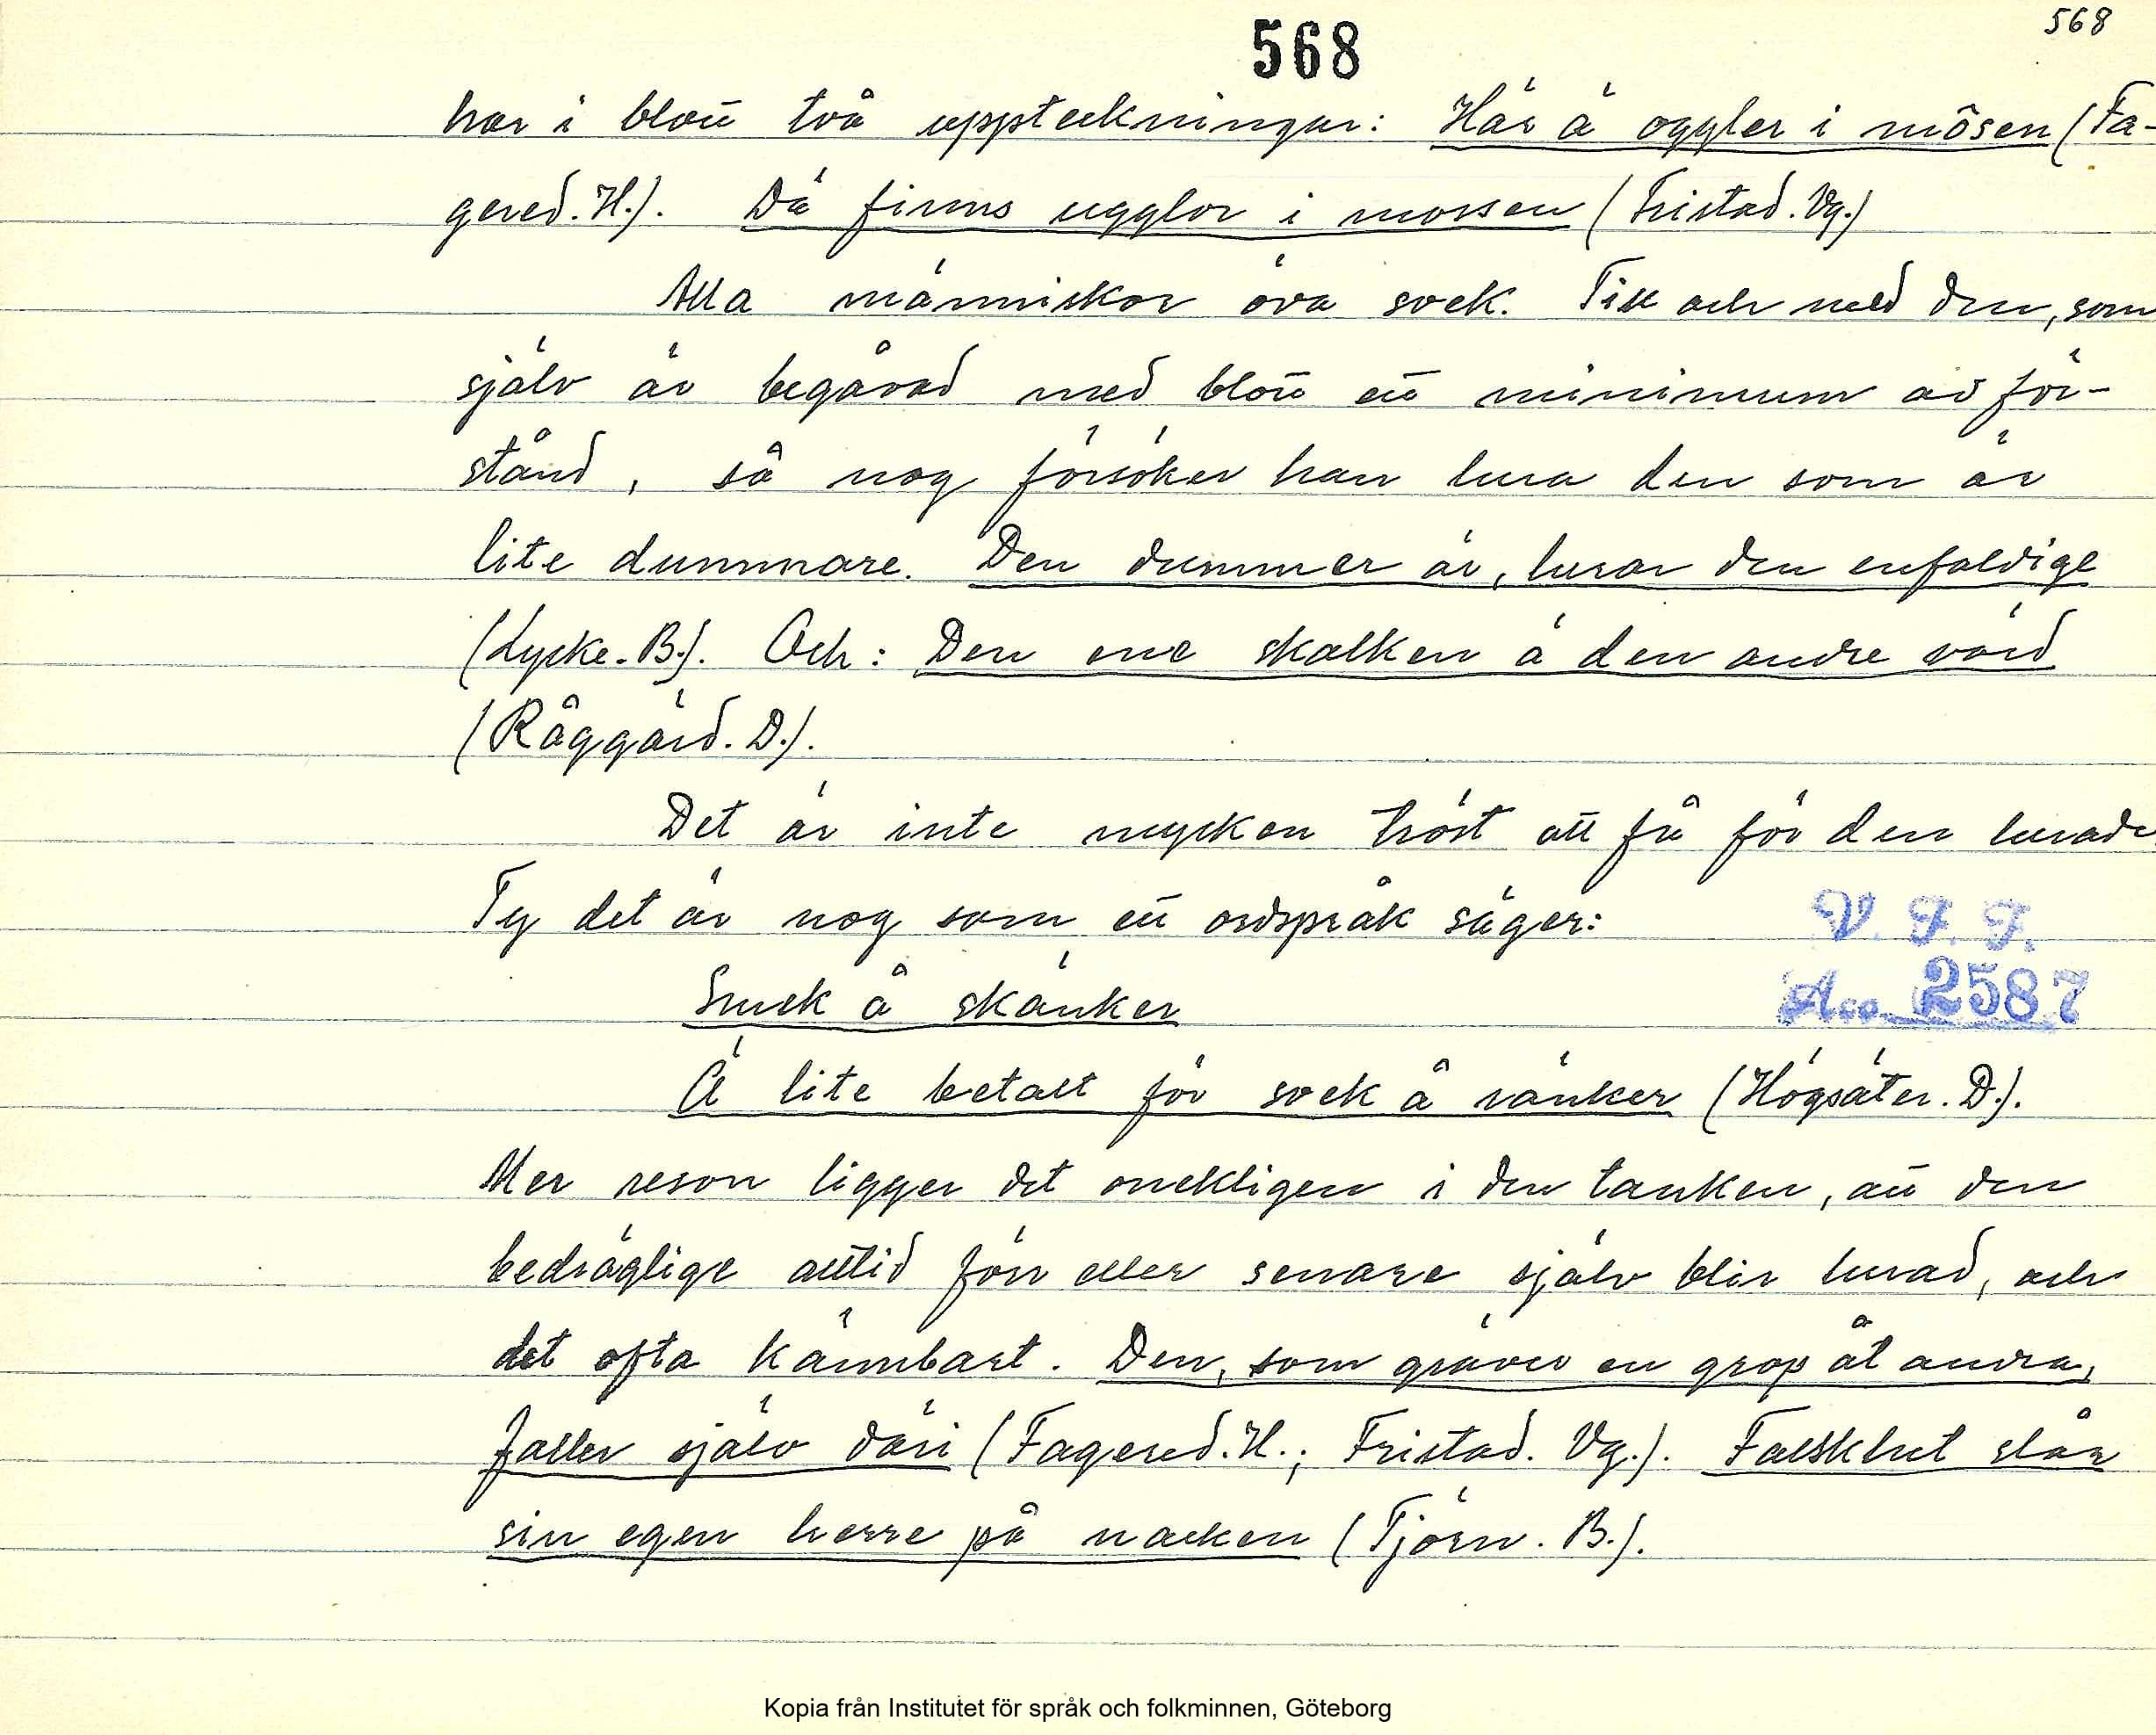 568
568
har i blott två uppteckningar: Här ä oggler i môsen (Fa-
gered. H.). Dä finns ugglor i mossen (Fristad. Vg.)
Alla människor öva svek. Till och med den, som
själv är begåvad med blott ett minimum av för-
stånd, så nog försöker han lura den som är
lite dummare. Den dummer är, lurar den enfaldige
(Lycke. B.). Och: Den ene skalken ä den andre värd
(Råggärd. D.).
Det är inte mycken tröst att få för den lurade.
Ty det är nog som ett ordspråk säger:
V. F. F.
Smek å skänker
Acc. 2587
Ä lite betalt för svek å ränker (Högsäter. D.).
Mer reson ligger det onekligen i den tanken, att den
bedräglige alltid förr eller senare själv blir lurad, och
det ofta kännbart. Den, som gräver en grop åt andra,
faller själv däri (Fagered. H.; Fristad. Vg.). Falskhet slår
sin egen herre på nacken (Tjörn. B.).
Kopia från Institutet för språk och folkminnen, Göteborg